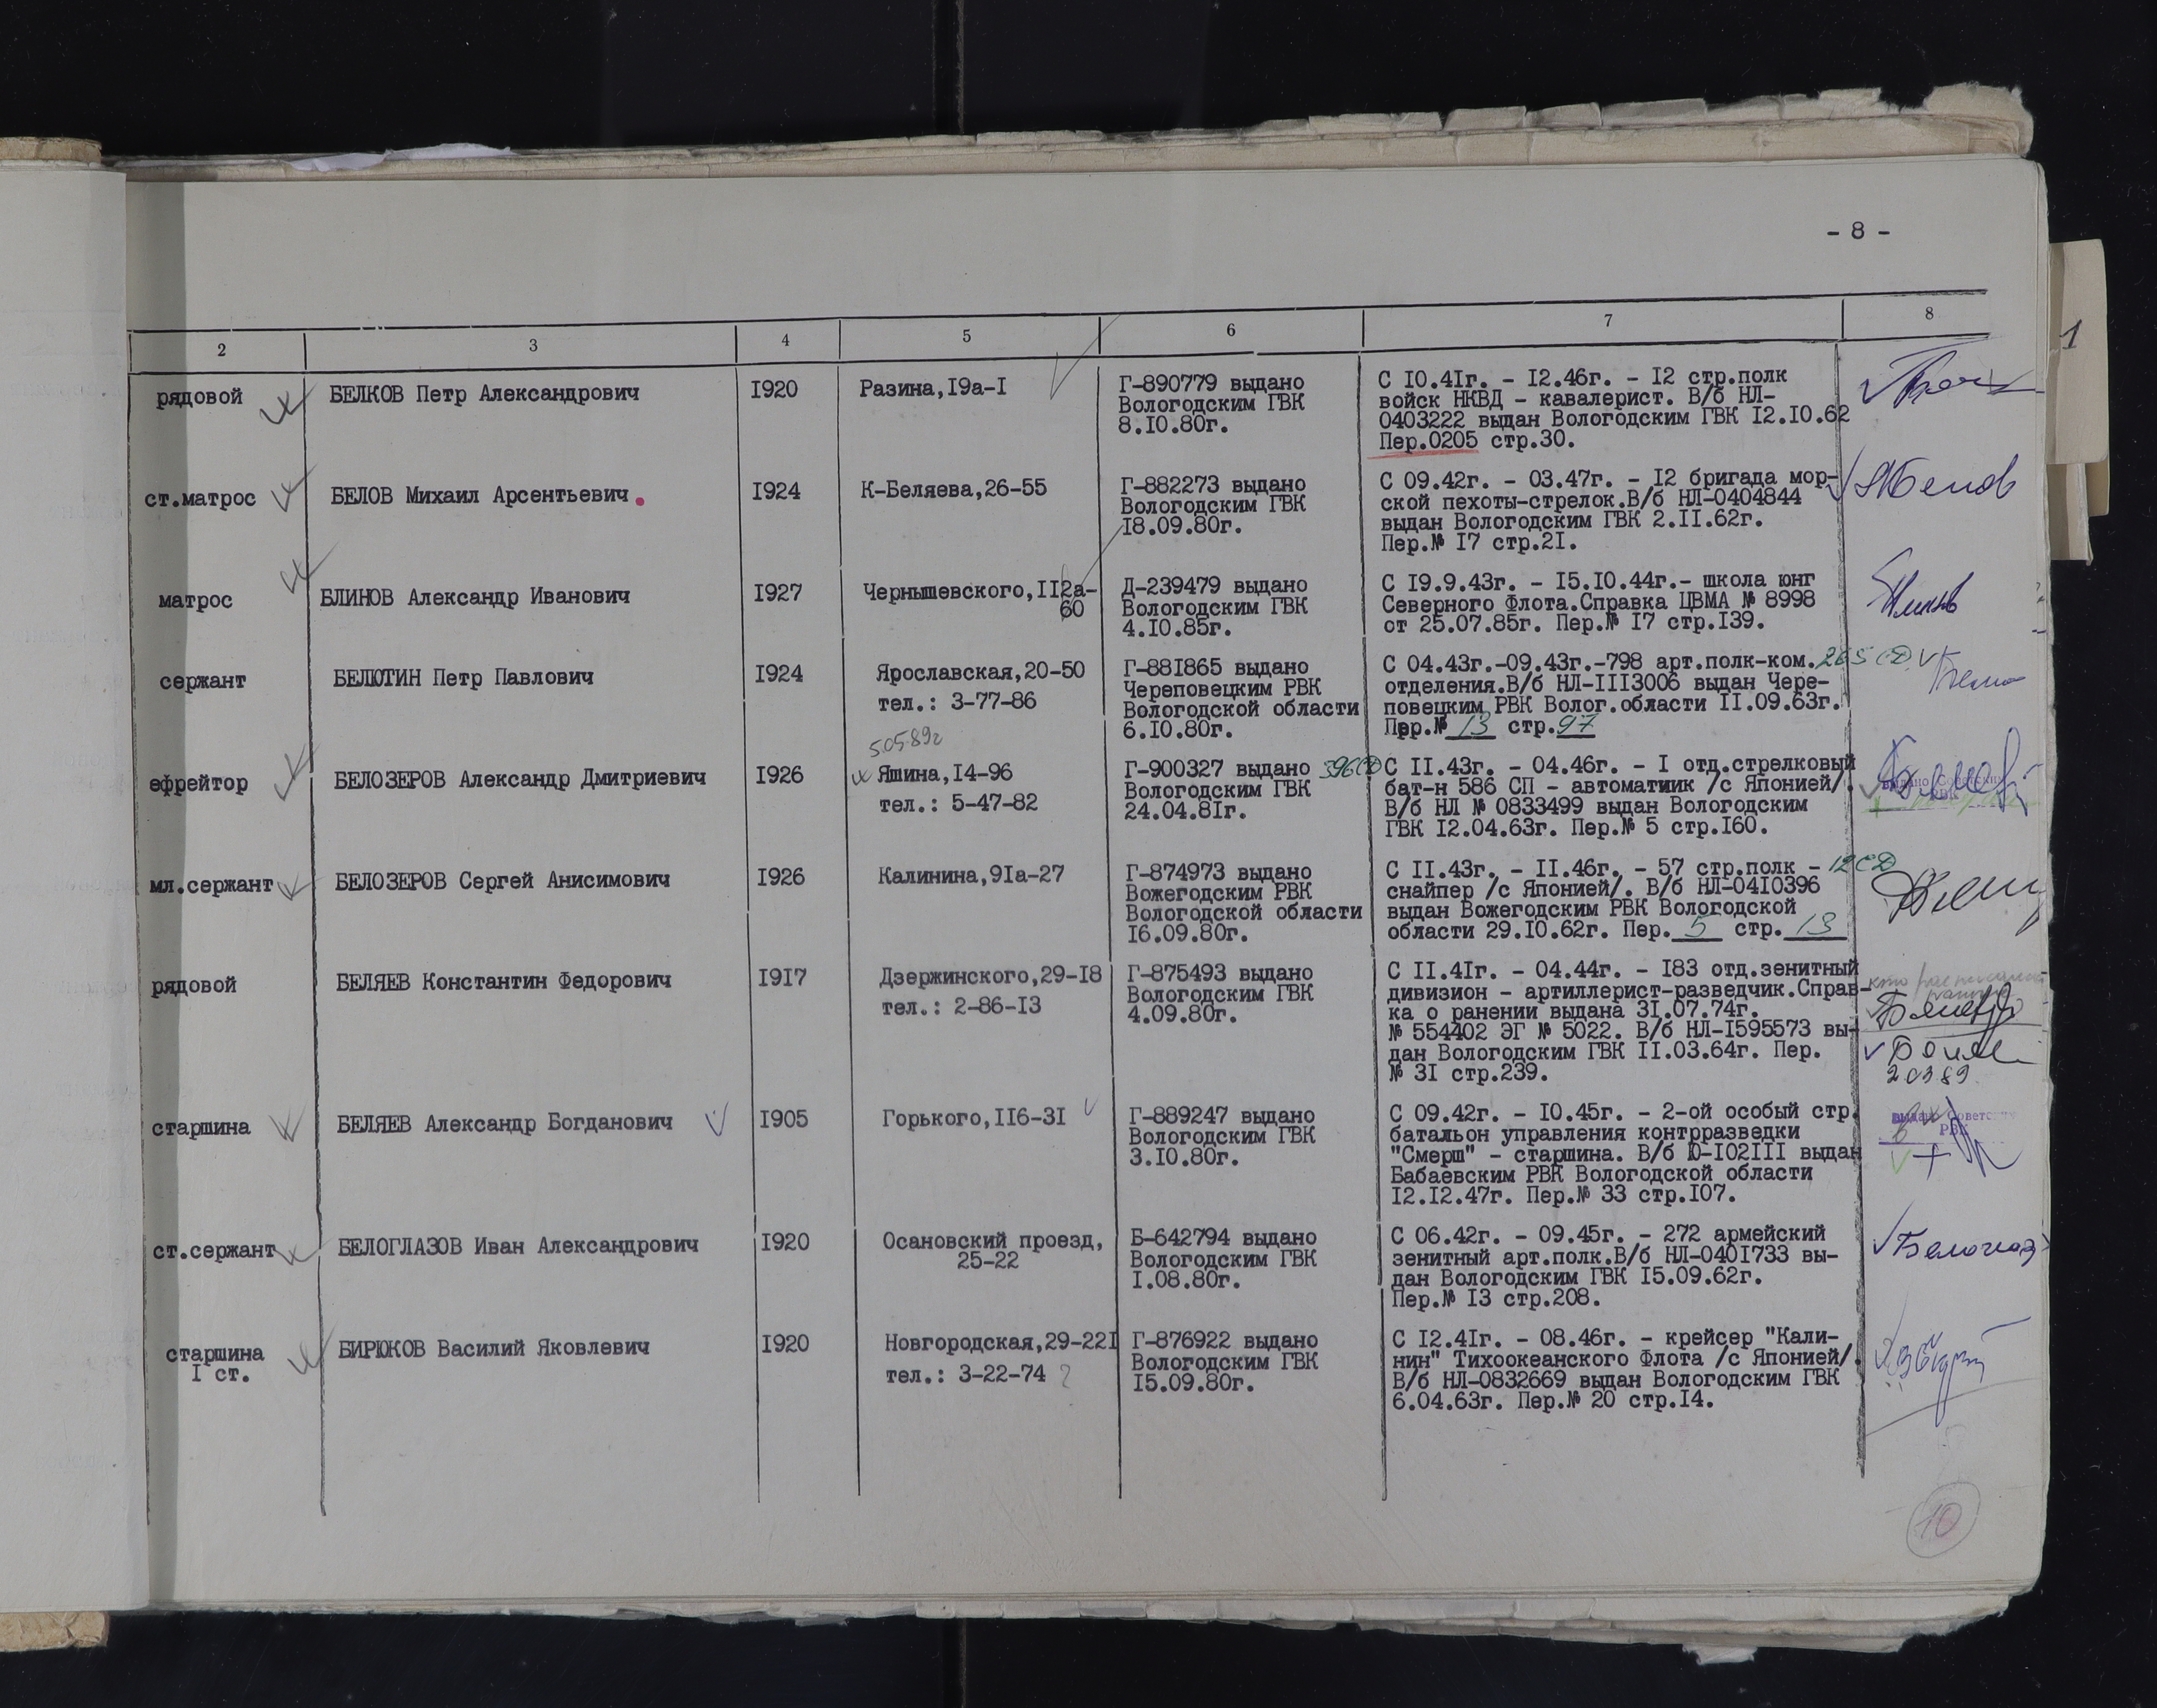 - 8 -
1
2 3 4 5 6 7 8
рядовой БЕЛКОВ Петр Александрович I920 Разина,I9а-I
Г-890779 выдано
Вологодским ГВК
8.I0.80г.
С I0.4Iг. - I2.46г. - I2 стр.полк
войск НКВД - кавалерист. В/б НЛ-
0403222 выдан Вологодским ГВК I2.I0.62
Пер.0205 стр.30.
ст.матрос БЕЛОВ Михаил Арсентьевич. I924 К-Беляева,26-55
Г-882273 выдано
Вологодским ГВК
I8.09.80г.
С 09.42г. - 03.47г. - I2 бригада мор-
ской пехоты-стрелок.В/б НЛ-0404844
выдан Вологодским ГВК 2.II.62г.
Пер.№ I7 стр.2I.
матрос БЛИНОВ Александр Иванович I927 Чернышевского,II2а-
60
Д-239479 выдано
Вологодским ГВК
4.I0.85г.
С I9.9.43г. - I5.I0.44г.- школа юнг
Северного Флота.Справка ЦВМА № 8998
от 25.07.85г. Пер.№ I7 стр.I39.
сержант БЕЛЮТИН Петр Павлович I924 Ярославская,20-50
тел.: 3-77-86
Г-88I865 выдано
Череповецким РВК
Вологодской области
6.I0.80г.
С 04.43г.-09.43г.-798 арт.полк-ком. 265 СД
отделения.В/б НЛ-III3006 выдан Чере-
повецким РВК Волог.области II.09.63г.
Пер.№ 13 стр.97
5.05.89г
ефрейтор БЕЛОЗЕРОВ Александр Дмитриевич I926 Яшина,I4-96
тел.: 5-47-82
Г-900327 выдано
Вологодским ГВК
24.04.8Iг.
396 СД С II.43г. - 04.46г. - I отд.стрелковый
бат-н 586 СП - автоматчик /с Японией/.
В/б НЛ № 0833499 выдан Вологодским
ГВК I2.04.63г. Пер.№ 5 стр.I60.
выдано Советским
РВК
мл.сержант БЕЛОЗЕРОВ Сергей Анисимович I926 Калинина,9Iа-27
Г-874973 выдано
Вожегодским РВК
Вологодской области
I6.09.80г.
С II.43г. - II.46г. - 57 стр.полк - 12 СД
снайпер /с Японией/. В/б НЛ-04I0396
выдан Вожегодским РВК Вологодской
области 29.I0.62г. Пер. 5 стр. 13
рядовой БЕЛЯЕВ Константин Федорович I9I7 Дзержинского,29-I8
тел.: 2-86-I3
Г-875493 выдано
Вологодским ГВК
4.09.80г.
С II.4Iг. - 04.44г. - I83 отд.зенитный
дивизион - артиллерист-разведчик.Справ-
ка о ранении выдана 3I.07.74г.
№ 554402 ЭГ № 5022. В/б НЛ-I595573 вы-
дан Вологодским ГВК II.03.64г. Пер.
№ 3I стр.239.
20389
старшина БЕЛЯЕВ Александр Богданович I905 Горького,II6-3I
Г-889247 выдано
Вологодским ГВК
3.I0.80г.
С 09.42г. - I0.45г. - 2-ой особый стр.
батальон управления контрразведки
"Смерш" - старшина. В/б Ю-I02III выдан
Бабаевским РВК Вологодской области
I2.I2.47г. Пер.№ 33 стр.I07.
выдано Советским
РВК
ст.сержант БЕЛОГЛАЗОВ Иван Александрович I920 Осановский проезд,
25-22
Б-642794 выдано
Вологодским ГВК
I.08.80г.
С 06.42г. - 09.45г. - 272 армейский
зенитный арт.полк.В/б НЛ-040I733 вы-
дан Вологодским ГВК I5.09.62г.
Пер.№ I3 стр.208.
Белоглаз
старшина
I ст.
БИРЮКОВ Василий Яковлевич I920 Новгородская,29-22I
тел.: 3-22-74 ?
Г-876922 выдано
Вологодским ГВК
I5.09.80г.
С I2.4Iг. - 08.46г. - крейсер "Кали-
нин" Тихоокеанского Флота /с Японией/.
В/б НЛ-0832669 выдан Вологодским ГВК
6.04.63г. Пер.№ 20 стр.I4.
10